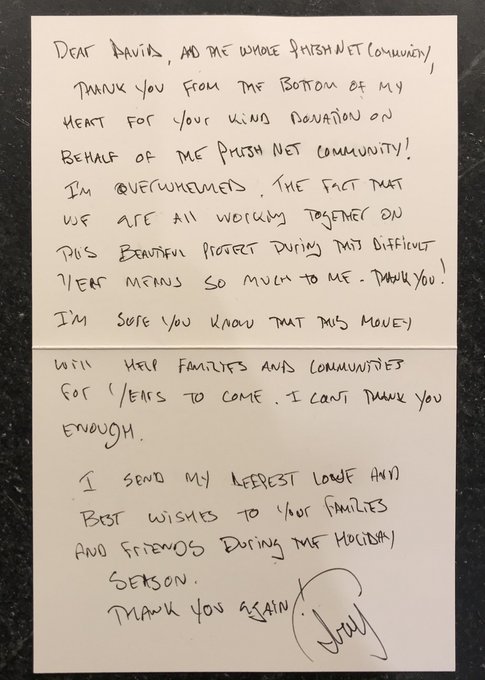 DEAR DAVID, AND THE WHOLE PHISH NET COMMUNITY,
THANK YOU FROM THE BOTTOM OF MY
HEART FOR YOUR KIND DONATION ON
BEHALF OF THE PHISH NET COMMUNITY!
I'M OVERWHELMED. THE FACT THAT
WE ARE ALL WORKING TOGETHER ON
THIS BEAUTIFUL PROJECT DURING THIS DIFFICULT
YEAR MEANS SO MUCH TO ME. THANK YOU!
I'M SURE YOU KNOW THAT THIS MONEY
WILL HELP FAMILIES AND COMMUNITIES
FOR YEARS TO COME. I CANT THANK YOU
ENOUGH.
I SEND MY DEEPEST LOVE AND
BEST WISHES TO YOUR FAMILIES
AND FRIENDS DURING THE HOLIDAY
SEASON.
THANK YOU AGAIN!
Trey